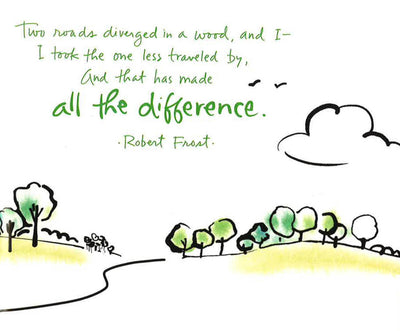 Two roads diverged in a wood, and I—
I took the one less traveled by,
And that has made
all the difference.
· Robert Frost ·